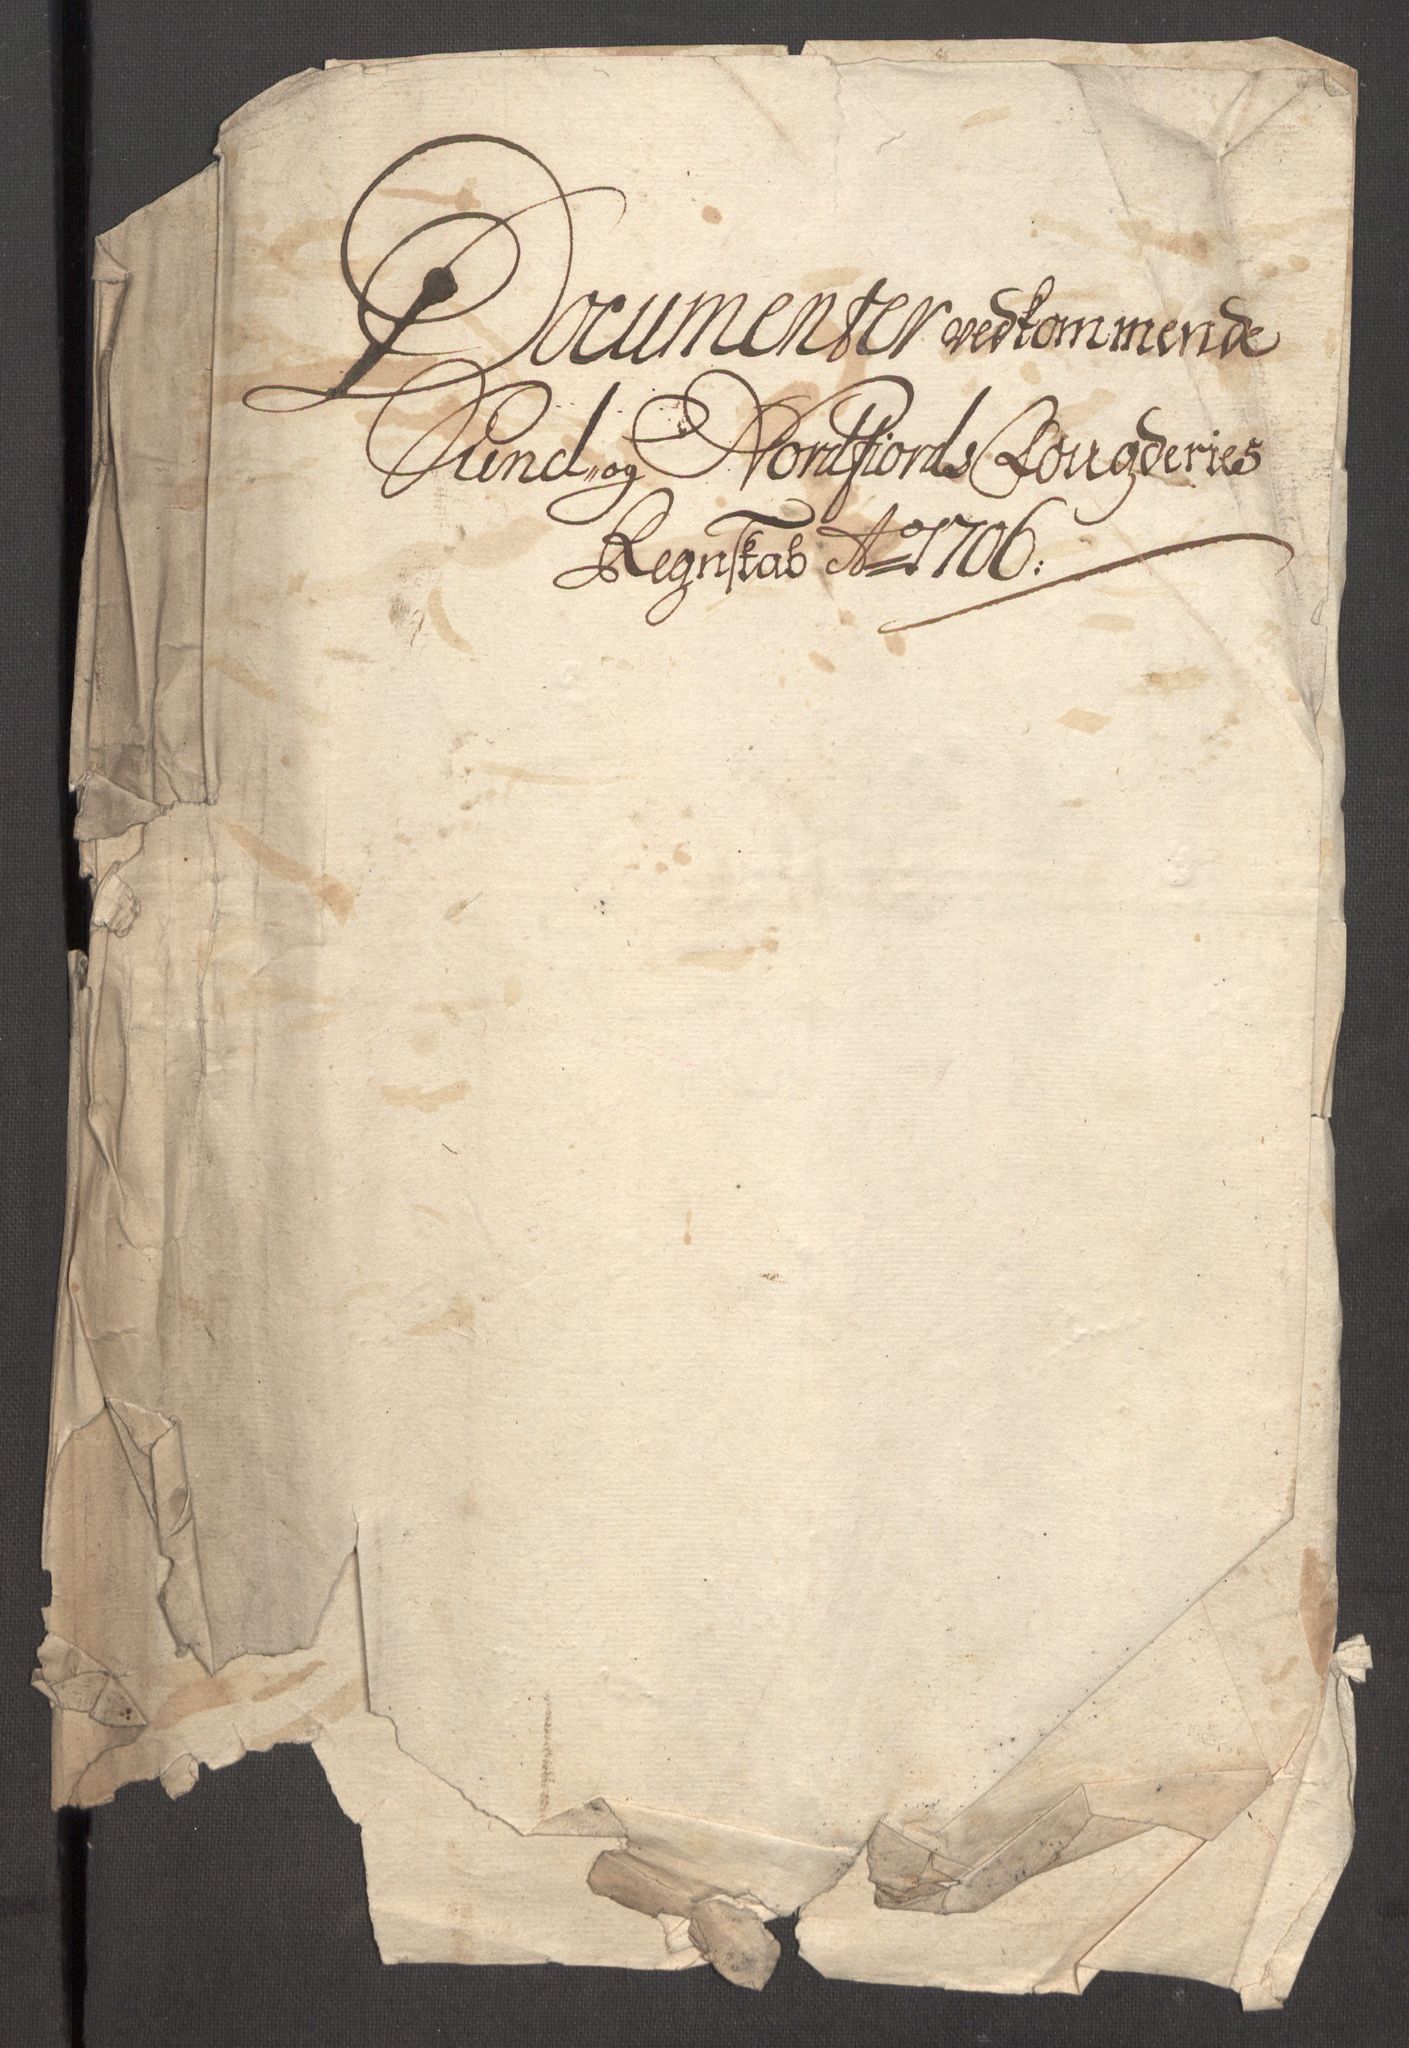 Documenter vedkommende
Sund„og Nordfiords Fougderies
Regnskab Ao 1706: